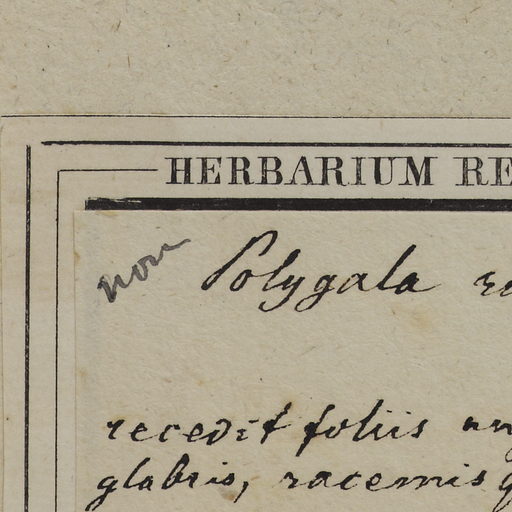 HERBARIUM RE
non Polygala
recedit foliis
glabris, racemis